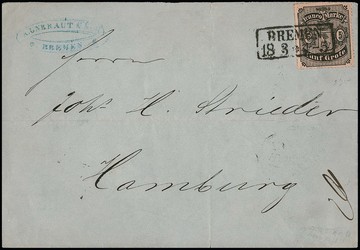 BREMEN
BREMEN
18 3
Franco Marke
Fünf Grote
Herrn
Joh. H. Strieder
Hamburg